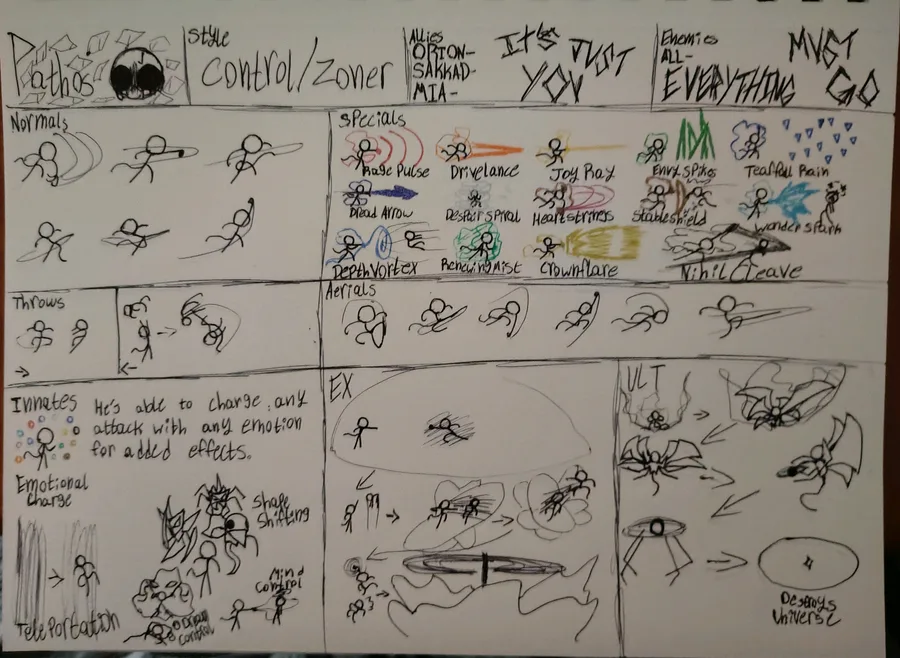 Pathos
Style
Control/Zoner
Allies
ORION-
SAKKAD-
MIA-
It's JUST
YOU
Enemies
ALL-
EVERYTHING
MUST
GO
Normals
Specials
Rage Pulse
Drivelance
Joy Ray
Envy Spikes
Tearfall Rain
Dread Arrow
Despair Spiral
Heartstrings
Stableshield
Wonder Spark
Depth Vortex
Renewing Mist
Crownflare
Nihil Cleave
Throws
Aerials
Innates
He's able to charge any
attack with any emotion
for added effects.
Emotional
Charge
Shape
Shifting
Mind
Control
Teleportation
Dream
Control
EX
ULT
Destroys
Universe